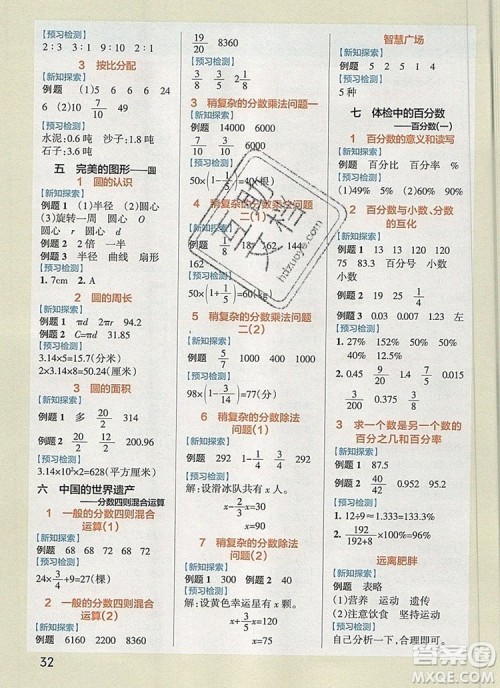 【预习检测】
2∶3 3∶1 9∶10 2∶11
3 按比分配
【新知探索】
例题 (1)5 6 6 24
6 (2)10 7/10 49
【预习检测】
水泥:0.6吨 沙子:1.8吨
石子:3.6吨
五 完美的图形——圆
1 圆的认识
【新知探索】
例题 1 (1)半径 (2)圆心
圆心 (3)旋转一周 圆心
圆心 r d
例题 2 2倍
例题 3 半径 曲线 扇形
【预习检测】
1. 7cm 2. A
2 圆的周长
【新知探索】
例题 1 πd 2πr
例题 2 C=πd 31.4
【预习检测】
3.14×5=15.7(分米)
2×3.14×8=50.24(厘米)
3 圆的面积
【新知探索】
例题 1 r πr
例题 2
【预习检测】
3.14×10²×2=628(平方厘米)
六 中国的世界遗产
——分数四则混合运算
1 一般的分数四则混合
运算(1)
【新知探索】
例题 68 68 72 68 72
【预习检测】
24×3/4÷9=2(棵)
2 一般的分数四则混合
运算(2)
【新知探索】
例题 6160 2200 8360
32
19/20 8360
【预习检测】
3/8 3/5 2 1/2
3 稍复杂的分数乘法问题一
【新知探索】
例题 14000 14000
6000 8000
【预习检测】
50×(1-1/5)=40(棵)
4 稍复杂的分数乘法问题
二(1)
【新知探索】
例题 1/8 18 162 144
162
【预习检测】
50×(1+1/5)=60(kg)
5 稍复杂的分数乘法问题
二(2)
【新知探索】
例题 5/7 1000 400 1000
400
【预习检测】
98×(1-3/14)=77(分)
6 稍复杂的分数除法
问题(1)
【新知探索】
例题 290 1-1/4 1-1/4
290
【预习检测】
解:设滑冰队共有x人。
x-2/5x=30
x=50
7 稍复杂的分数除法
问题(2)
【新知探索】
例题 1 300 例题 2 40
【预习检测】
解:设黄色幸运星有x颗。
x=60
x=75
智慧广场
【新知探索】
例题 5 2 5 1 4
【预习检测】
5种
七 体检中的百分数
——百分数(一)
1 百分数的意义和读写
【新知探索】
例题 百分比 百分率 %
【预习检测】
(1)49% (2)15% (3)90%
2 百分数与小数、分数
的互化
【新知探索】
例题 1 37.5 76 0.375
37.5 0.76 76
例题 2 百分号 小数
小数
例题 3 0.113 0.108 左
【预习检测】
1. 27% 150% 0.7%
32% 40%
2. 0.45 9/20 1.2 6/5
0.38 19/50
3 求一个数是另一个数的
百分之几和百分率
【新知探索】
例题 1 81 88.2
例题 2 87.5
【预习检测】
1. 12÷9≈1.333=133.3%
2. 192/192+8×100%=96%
远离肥胖
【新知探索】
例题 表略
(1)营养 运动 遗传
(2)注意饮食 坚持运动
【预习检测】
自己分析一下,合理即可。
hdzuoye.com
答案圈
MXQE.COM